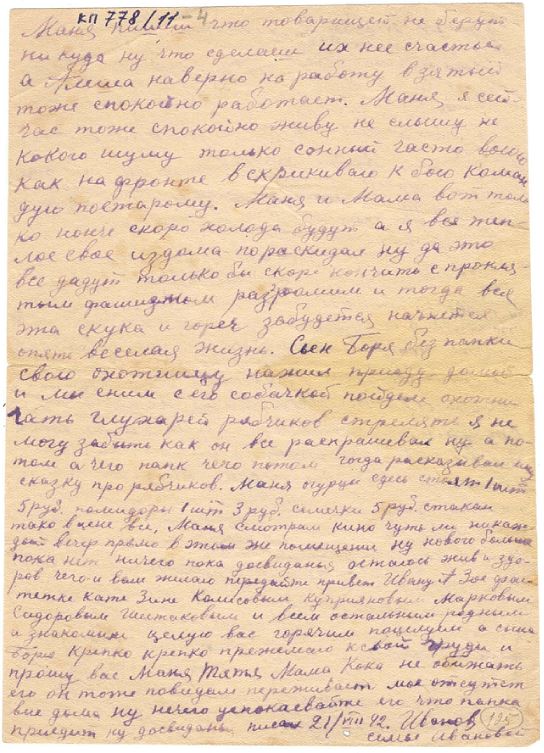 КП 778/11-4
Маня пишеш что товарищей не берут
никуда ну что сделаеш их нее счастье
а Алеша наверно на работу взятый
тоже спокойно работает. Маня я сей-
час тоже спокойно живу не слышу не
какого шуму только сонный часто воюю
как на фронте вскрикиваю к бою коман
дую постарому. Маня и Мама вот толь
ко нонче скоро холода будут а я все теп-
лое свое издома пораскидал ну да это
все дадут только бы скоре кончить с прокля
тым фашизмом разгромим и тогда вся
эта скука и гореч забудется начнется
опять веселая жизнь. Сыен Боря без папки
свою охотницу нажил приеду домой
и мы сним с его собачкой пойдем охотни
чать глухарей рябчиков стрелять я не
могу забыть как он все распрашевал ну а по-
том а чего папк чего потом когда расказывал ему
сказку про рябчиков. Маня огурци сдесь стоят 1 шт
5 руб. помидоры 1 шт 3 руб. семечки 5 руб. стакан
тако в цене все. Маня смотрям кино чуть ли никаж
дый вечер прямо в этом же помещении ну нового больше
пока нет ничего пока досвиданья осталось жив и здо-
ров чего и вам желаю передайте привет Ивану А Зое
тетке Кате Зине Колисовым Куприяновым Марковым
Сидоровым Шитаковым и всем остальным родным
и знакомым целую вас горячим поцелуем а сына
Борю крипко крепко прежемаю ксвой груди и
прошу вас Маня Тятя Мама Кока не обижать
его он тоже повидем переживает мое отсутст
вие дома ну нечего успокаевайте его что папка
приедит ну досвиданья писал 21/VIII 42. Иванов
семье Ивановой
195